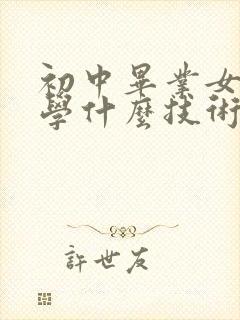 初中畢業女
學什麼技術
許世友